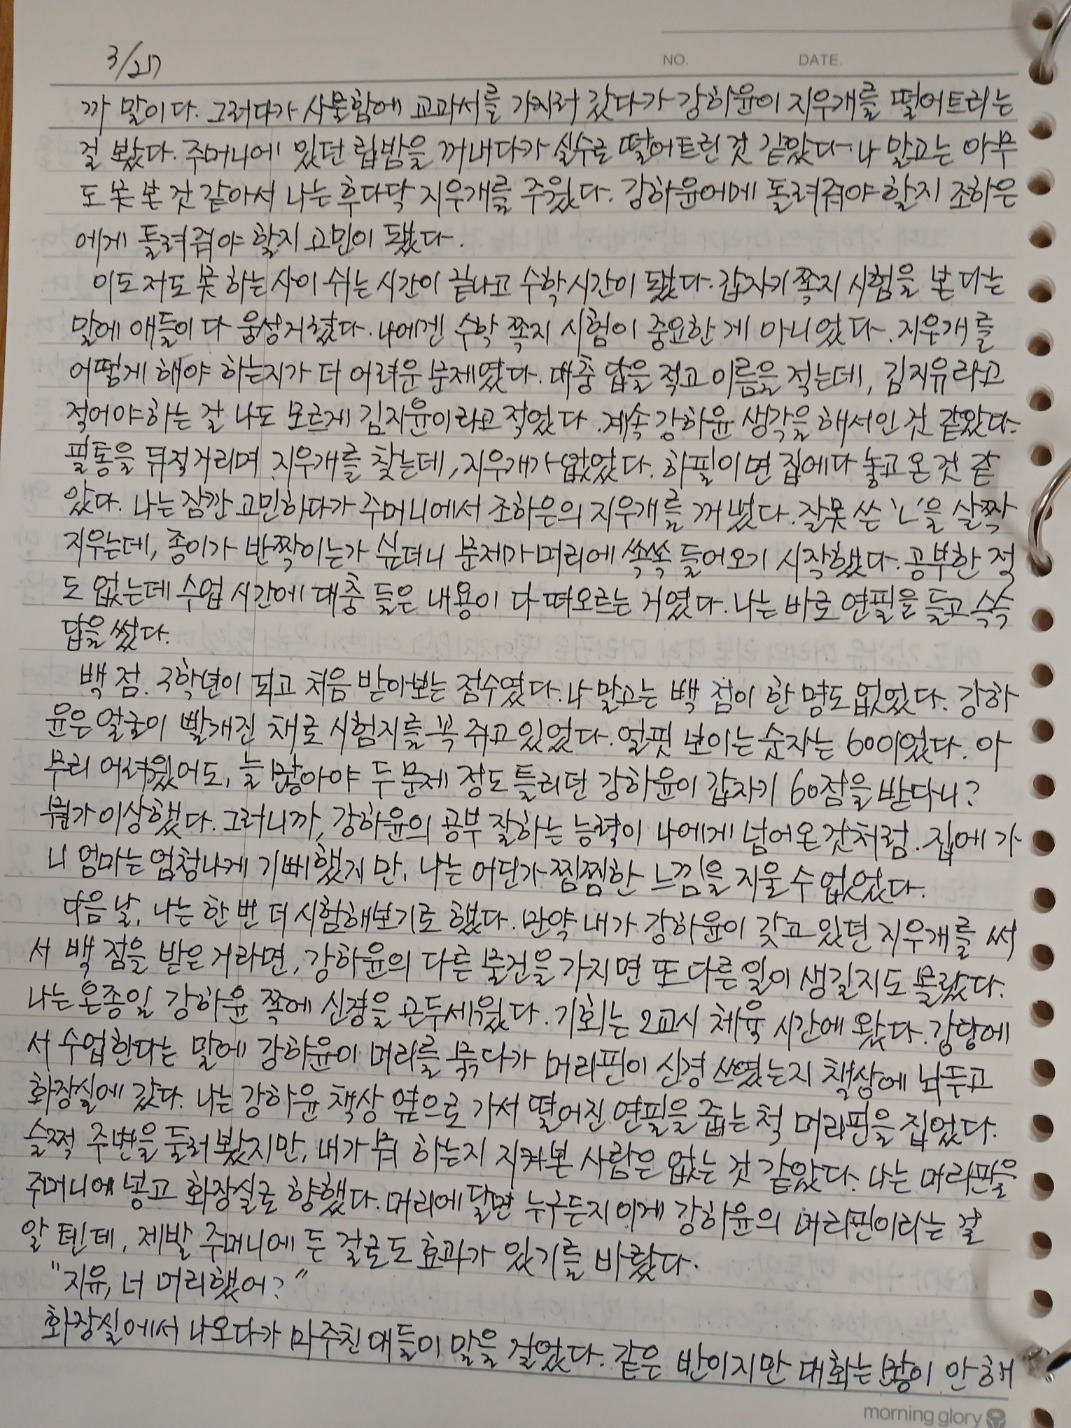 3/27
NO. DATE.
까 말이다. 그러다가 사물함에 교과서를 가지러 갔다가 강하윤이 지우개를 떨어트리는
걸 봤다. 주머니에 있던 립밤을 꺼내다가 실수로 떨어트린 것 같았다. 나 말고는 아무
도 못 본 것 같아서 나는 후다닥 지우개를 주웠다. 강하윤에게 돌려줘야 할지 조하은
에게 돌려줘야 할지 고민이 됐다.
이도 저도 못 하는 사이 쉬는 시간이 끝나고 수학시간이 됐다. 갑자기 쪽지 시험을 본다는
말에 애들이 다 웅성거렸다. 나에겐 수학 쪽지 시험이 중요한 게 아니었다. 지우개를
어떻게 해야 하는지가 더 어려운 문제였다. 대충 답을 적고 이름을 적는데, 김지유라고
적어야 하는 걸 나도 모르게 김지윤이라고 적었다. 계속 강하윤 생각을 해서인 것 같았다.
필통을 뒤적거리며 지우개를 찾는데, 지우개가 없었다. 하필이면 집에다 놓고 온 것 같
았다. 나는 잠깐 고민하다가 주머니에서 조하은의 지우개를 꺼냈다. 잘못 쓴 'ㄴ'을 살짝
지우는데, 종이가 반짝이는가 싶더니 문제가 머리에 쏙쏙 들어오기 시작했다. 공부한 적
도 없는데 수업 시간에 대충 들은 내용이 다 떠오르는 거였다. 나는 바로 연필을 들고 슥슥
답을 썼다.
백 점. 3학년이 되고 처음 받아보는 점수였다. 나 말고는 백 점이 한 명도 없었다. 강하
윤은 얼굴이 빨개진 채로 시험지를 꼭 쥐고 있었다. 얼핏 보이는 숫자는 60이었다. 아
무리 어려웠어도, 늘 많아야 두 문제 정도 틀리던 강하윤이 갑자기 60점을 받다니?
뭔가 이상했다. 그러니까, 강하윤의 공부 잘하는 능력이 나에게 넘어온 것처럼. 집에 가
니 엄마는 엄청나게 기뻐했지만, 나는 어딘가 찜찜한 느낌을 지울 수 없었다.
다음 날, 나는 한 번 더 시험해보기로 했다. 만약 내가 강하윤이 갖고 있던 지우개를 써
서 백 점을 받은 거라면, 강하윤의 다른 물건을 가지면 또 다른 일이 생길지도 몰랐다.
나는 온종일 강하윤 쪽에 신경을 곤두세웠다. 기회는 2교시 체육 시간에 왔다. 강당에
서 수업한다는 말에 강하윤이 머리를 묶다가 머리핀이 신경 쓰였는지 책상에 놔두고
화장실에 갔다. 나는 강하윤 책상 옆으로 가서 떨어진 연필을 줍는 척 머리핀을 집었다.
슬쩍 주변을 둘러봤지만, 내가 뭐 하는지 지켜본 사람은 없는 것 같았다. 나는 머리핀을
주머니에 넣고 화장실로 향했다. 머리에 달면 누구든지 이게 강하윤의 머리핀이라는 걸
알 텐데, 제발 주머니에 든 걸로도 효과가 있기를 바랐다.
"지유, 너 머리했어?"
화장실에서 나오다가 마주친 애들이 말을 걸었다. 같은 반이지만 대화는 많이 안 해
morning glory